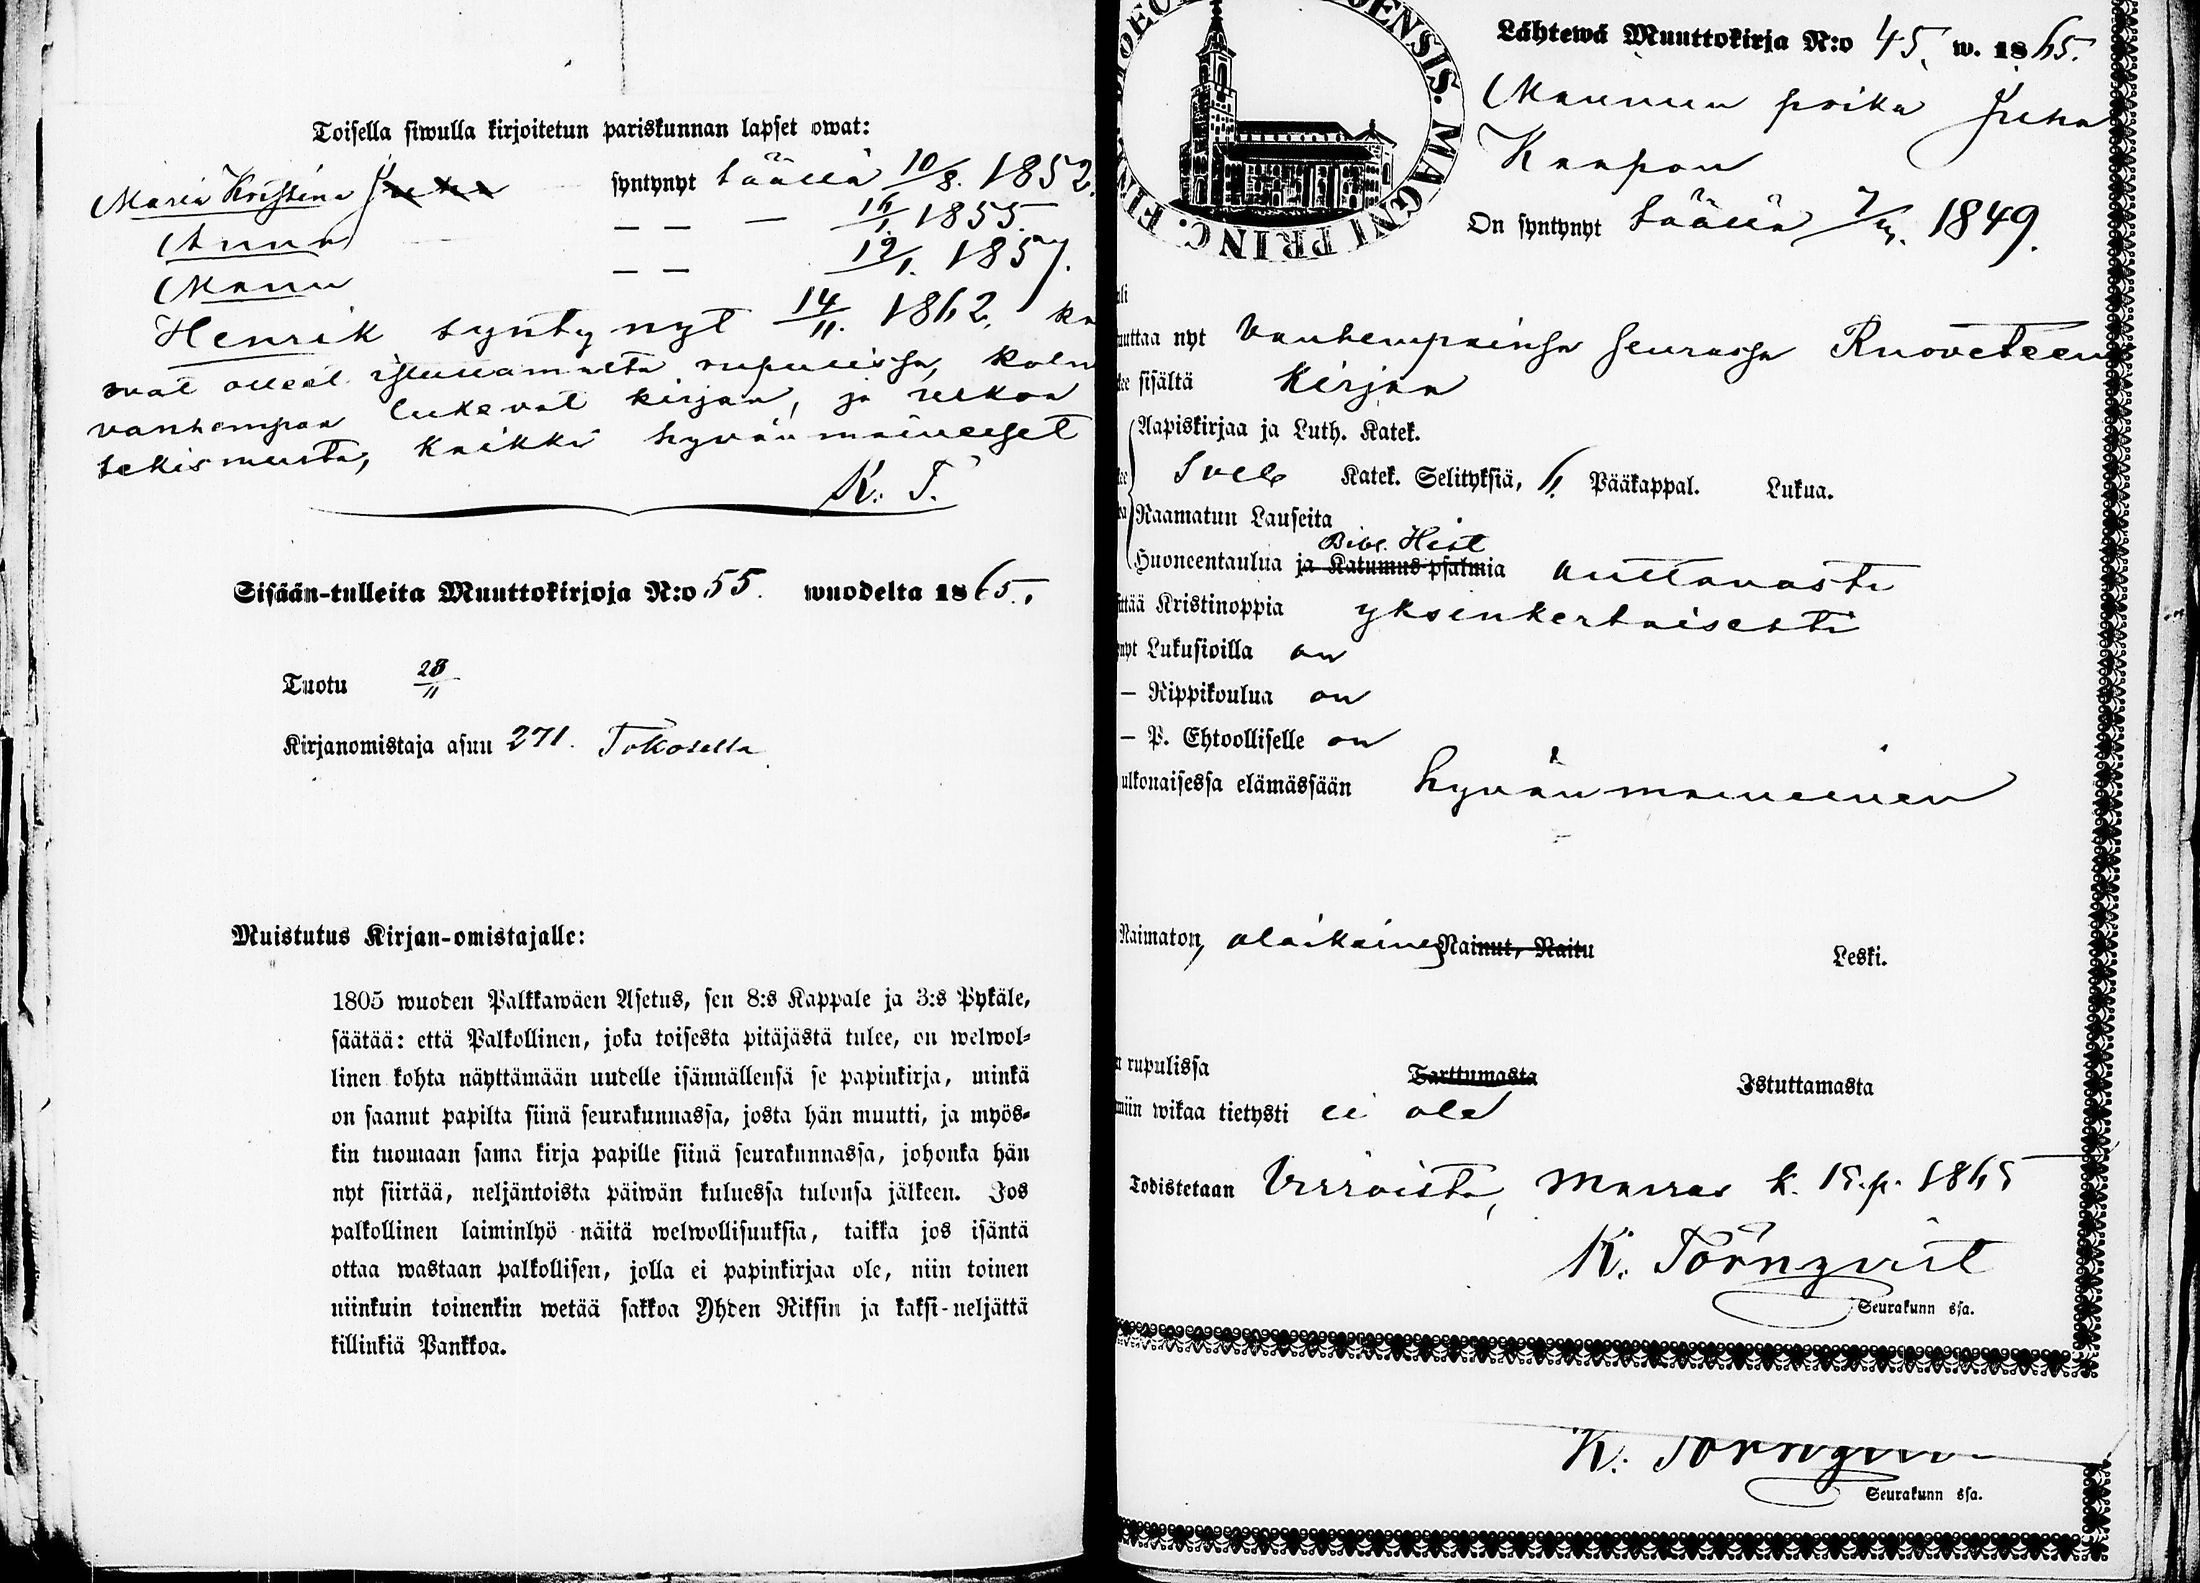 Toisella siwulla kirjoitetun pariskunnan lapset owat:
Maria Kristina Juha syntynyt täällä 10/8. 1852.
Anna — — — 16/1. 1855.
Manu — — 12/1. 1857.
Henrik syntynyt 14/11. 1862.
ovat olleet istuttamalta rupulissa,
vanhempaa lukevat kirjan, ja
kaikki hyvän maineeset
K. T.
Sisään-tulleita Muuttokirjoja N:o 55. wuodelta 1865.
Tuotu 28/11
Kirjanomistaja asuu 271. Tokosella.
Muistutus Kirjan-omistajalle:
1805 wuoden Palkkawäen Asetus, sen 8:s Kappale ja 3:s Pykäle,
säätää: että Palkollinen, joka toisesta pitäjästä tulee, on welwol-
linen kohta näyttämään uudelle isännällensä se papinkirja, minkä
on saanut papilta siinä seurakunnassa, josta hän muutti, ja myös-
kin tuomaan sama kirja papille siinä seurakunnassa, johonka hän
nyt siirtää, neljäntoista päiwän kuluessa tulonsa jälkeen. Jos
palkollinen laiminlyö näitä welwollisuuksia, taikka jos isäntä
ottaa wastaan palkollisen, jolla ei papinkirjaa ole, niin toinen
niinkuin toinenkin wetää sakkoa Yhden Riksin ja kaksi-neljättä
killinkiä Pankkoa.
OENSIS. MAGNI PRINC. FIN
Lähtewä Muuttokirja N:o 45. w. 1865.
Maunun poika Juha
Kaapon
On syntynyt täällä 1849.
uuttaa nyt Vanhempainsa seurassa Ruoveteen
sisältä Kirjan
Aapiskirjaa ja Luth. Katek.
Sveb Katek. Selityksiä, 6. Pääkappal. Lukua.
Raamatun Lauseita
Bibl. Hist
Huoneentaulua ja Katumus psalmia auttavasti
ttää Kristinoppia yksinkertaisesti
nyt Lukusioilla on
— Rippikoulua on
— P. Ehtoolliselle on
ulkonaisessa elämässään hyvän maineinen
Naimaton, alaikäinen Nainut, Naitu Leski.
rupulissa Tarttumasta Istuttamasta
miin wikaa tietysti ei ole
Todistetaan Virroista, Marras k. 15. p. 1865
K. Törnqvist
Seurakunn ssa.
K. Törnqvis
Seurakunn ssa.